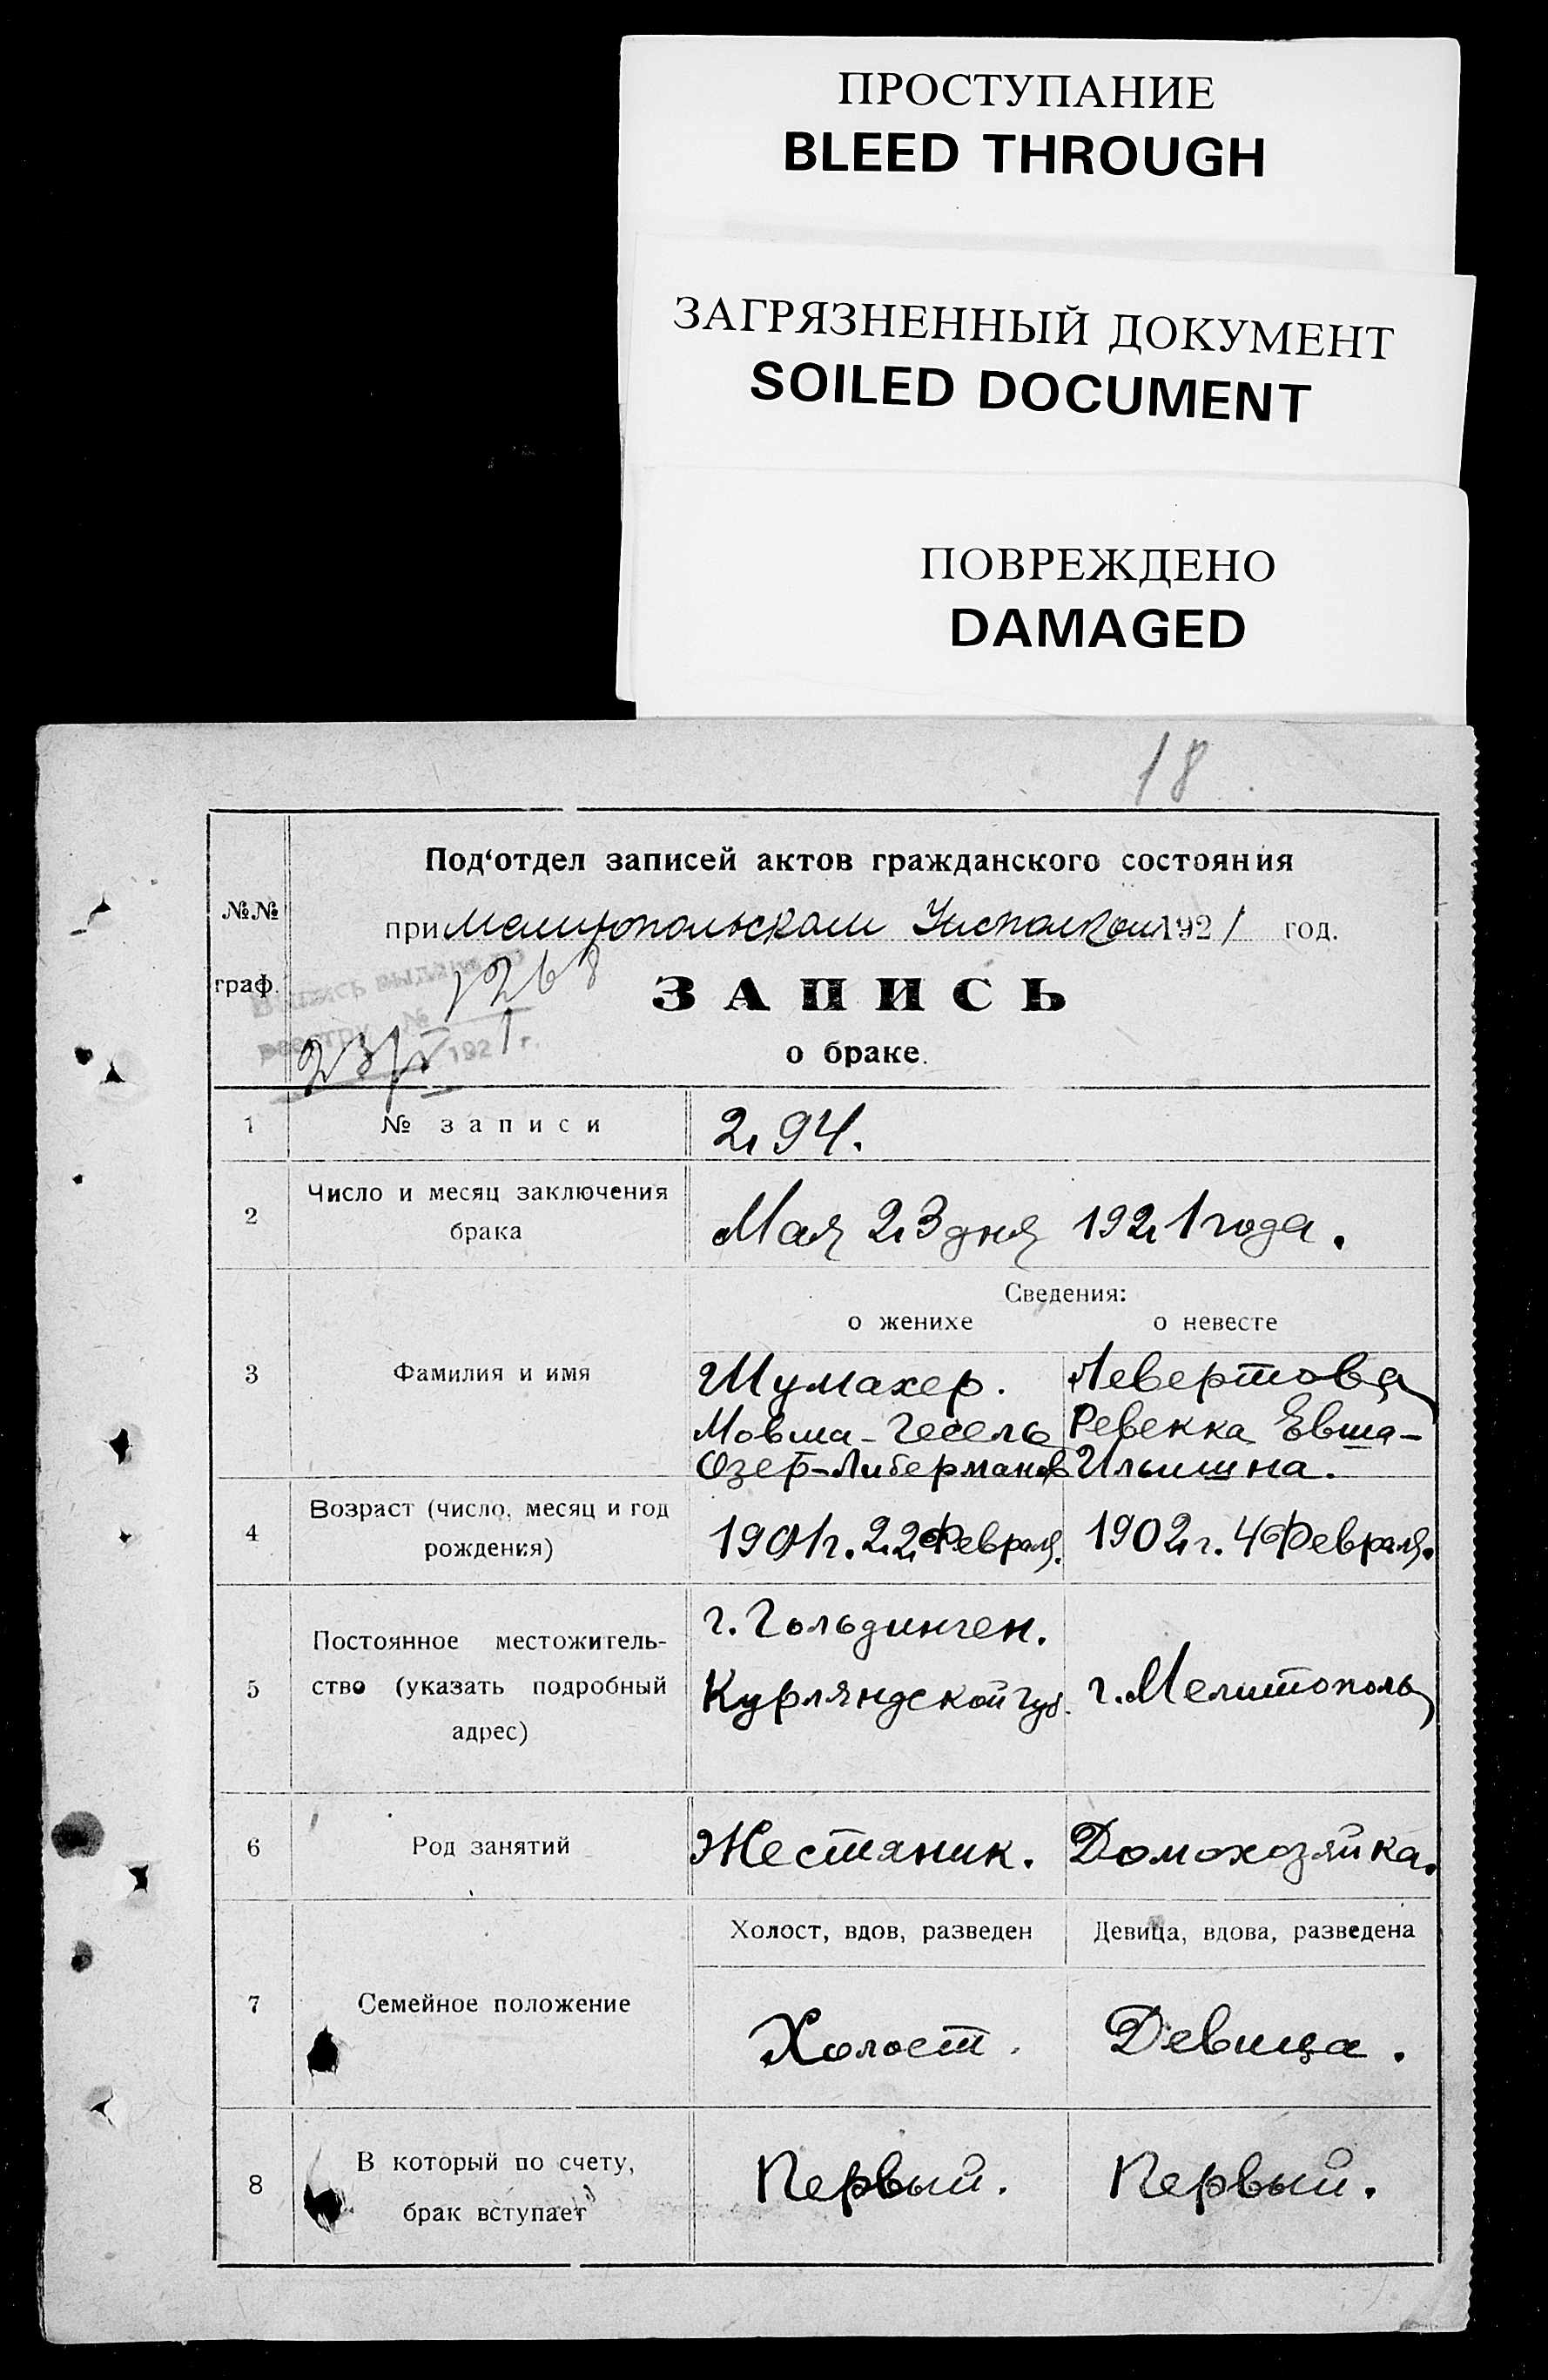 ПРОСТУПАНИЕ
BLEED THROUGH
ЗАГРЯЗНЕННЫЙ ДОКУМЕНТ
SOILED DOCUMENT
ПОВРЕЖДЕНО
DAMAGED
18
№№
граф.
Под‘отдел записей актов гражданского состояния
при Мелитопольском Уисполком 1921 год.
выдана
1268
реестру №
23/V 1921 г.
ЗАПИСЬ
о браке.
1
№ записи
294.
2
Число и месяц заключения
брака
Мая 23 дня 1921 года.
Сведения:
о женихе
о невесте
3
Фамилия и имя
Шумахер.
Мовша-Гесель
Озер-Либерманов
Левертова
Ревекка Евша-
Ильишна.
4
Возраст (число, месяц и год
рождения)
1901г. 22 Февраля.
1902г. 4 Февраля.
5
Постоянное местожитель-
ство (указать подробный
адрес)
г. Гольдинген.
Курляндской губ.
г. Мелитополь
6
Род занятий
Жестяник.
Домохозяйка.
7
Семейное положение
Холост, вдов, разведен
Девица, вдова, разведена
Холост.
Девица.
8
В который по счету,
брак вступает
Первый.
Первый.